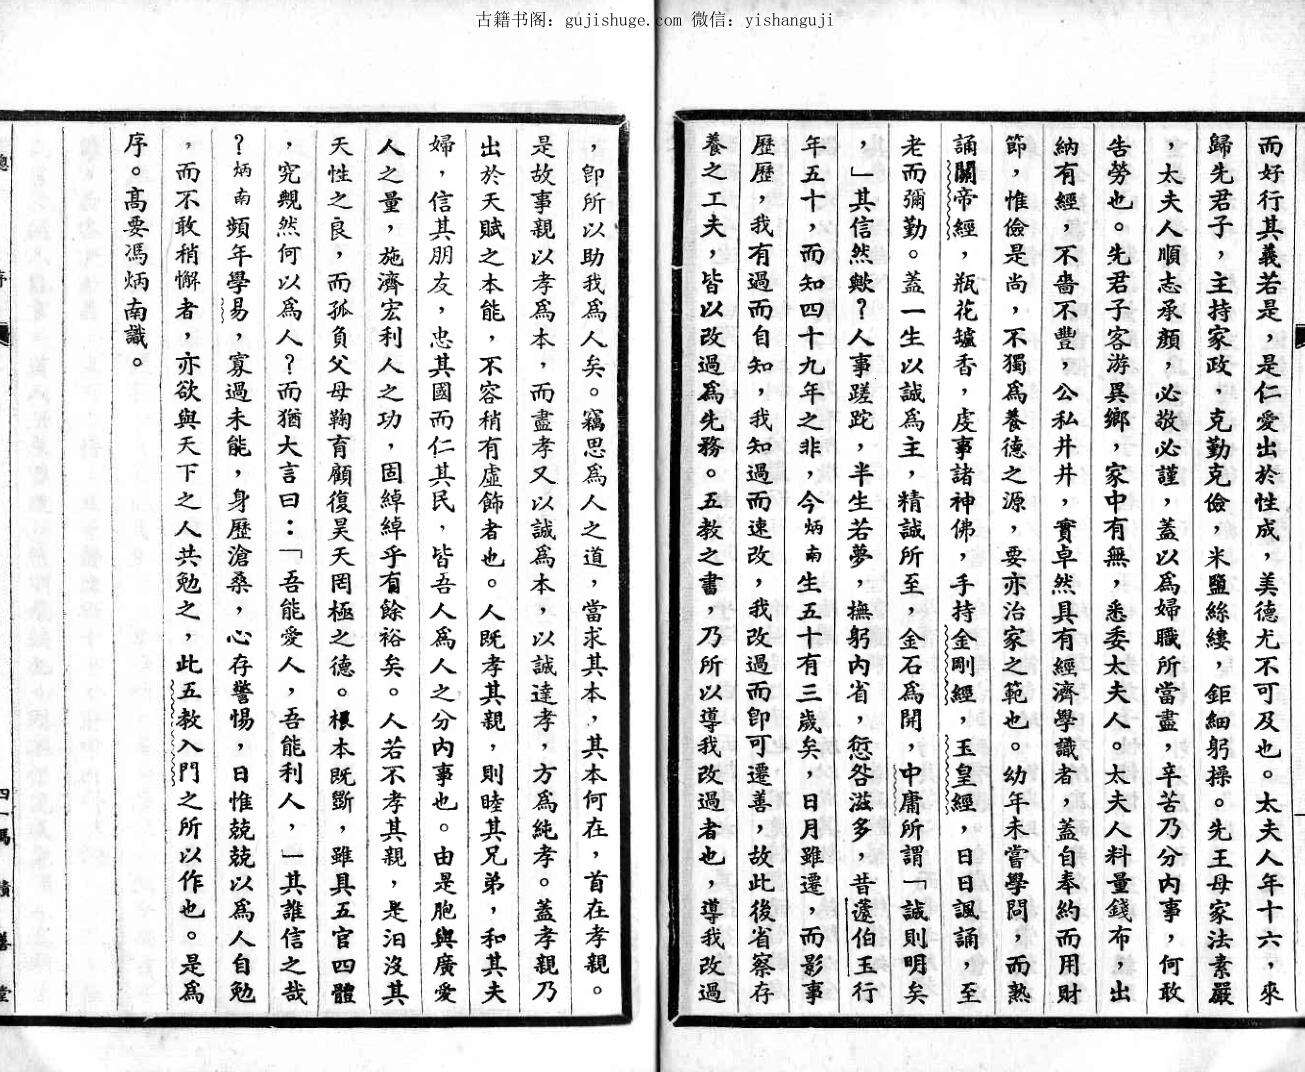 古籍书阁：gujishuge.com 微信：yishanguji
而好行其義若是，是仁愛出於性成，美德尤不可及也。太夫人年十六，來
歸先君子，主持家政，克勤克儉，米鹽絲縷，鉅細躬操。先王母家法素嚴
，太夫人順志承顏，必敬必謹，蓋以為婦職所當盡，辛苦乃分內事，何敢
告勞也。先君子客游異鄉，家中有無，悉委太夫人。太夫人料量錢布，出
納有經，不嗇不豐，公私井井，實卓然具有經濟學識者，蓋自奉約而用財
節，惟儉是尚，不獨為養德之源，要亦治家之範也。幼年未嘗學問，而熟
誦關帝經，瓶花罏香，虔事諸神佛，手持金剛經，玉皇經，日日諷誦，至
老而彌勤。蓋一生以誠為主，精誠所至，金石為開，中庸所謂一誠則明矣
，」其信然歟？人事蹉跎，半生若夢，撫躬內省，愆咎滋多，昔蘧伯玉行
年五十，而知四十九年之非，今炳南生五十有三歲矣，日月雖遷，而影事
歷歷，我有過而自知，我知過而速改，我改過而卽可遷善，故此後省察存
養之工夫，皆以改過為先務。五教之書，乃所以導我改過者也，導我改過
，卽所以助我為人矣。竊思為人之道，當求其本，其本何在，首在孝親。
是故事親以孝為本，而盡孝又以誠為本，以誠達孝，方為純孝。蓋孝親乃
出於天賦之本能，不容稍有虛飾者也。人既孝其親，則睦其兄弟，和其夫
婦，信其朋友，忠其國而仁其民，皆吾人為人之分內事也。由是胞與廣愛
人之量，施濟宏利人之功，固綽綽乎有餘裕矣。人若不孝其親，是汨沒其
天性之良，而孤負父母鞠育顧復昊天罔極之德。根本既斷，雖具五官四體
，究靦然何以為人？而猶大言曰：「吾能愛人，吾能利人，一其誰信之哉
？炳南頻年學易，寡過未能，身歷滄桑，心存警惕，日惟兢兢以為人自勉
，而不敢稍懈者，亦欲與天下之人共勉之，此五教入門之所以作也。是為
序。高要馮炳南識。
四一馮 積 善 堂